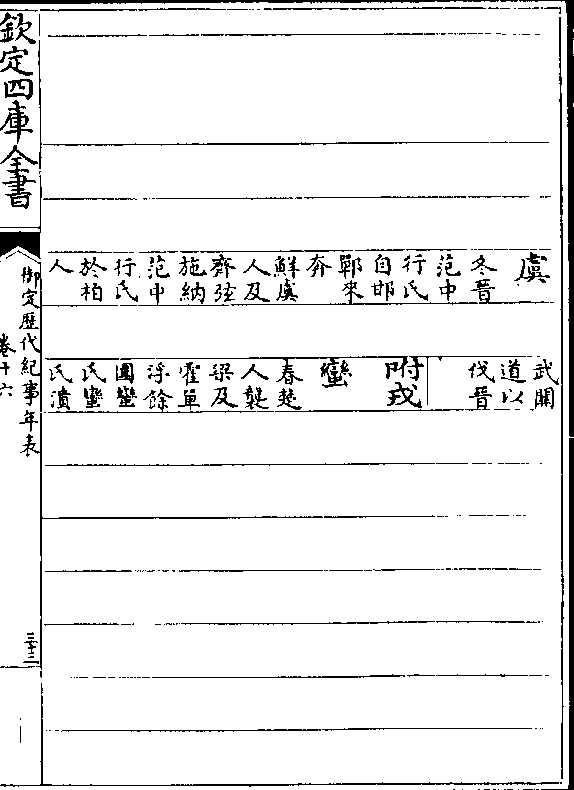 虞
冬晉
范中
行氏
自邯
鄲來
奔
鮮虞
人及
齊弦
施納
范中
行氏
於柏
人
武關
道以
伐晉
附戎
蠻
春楚
人襲
梁及
霍單
浮餘
圍蠻
氏蠻
氏潰
欽定四庫全書
御定歴代紀事年表
卷十六
三十三